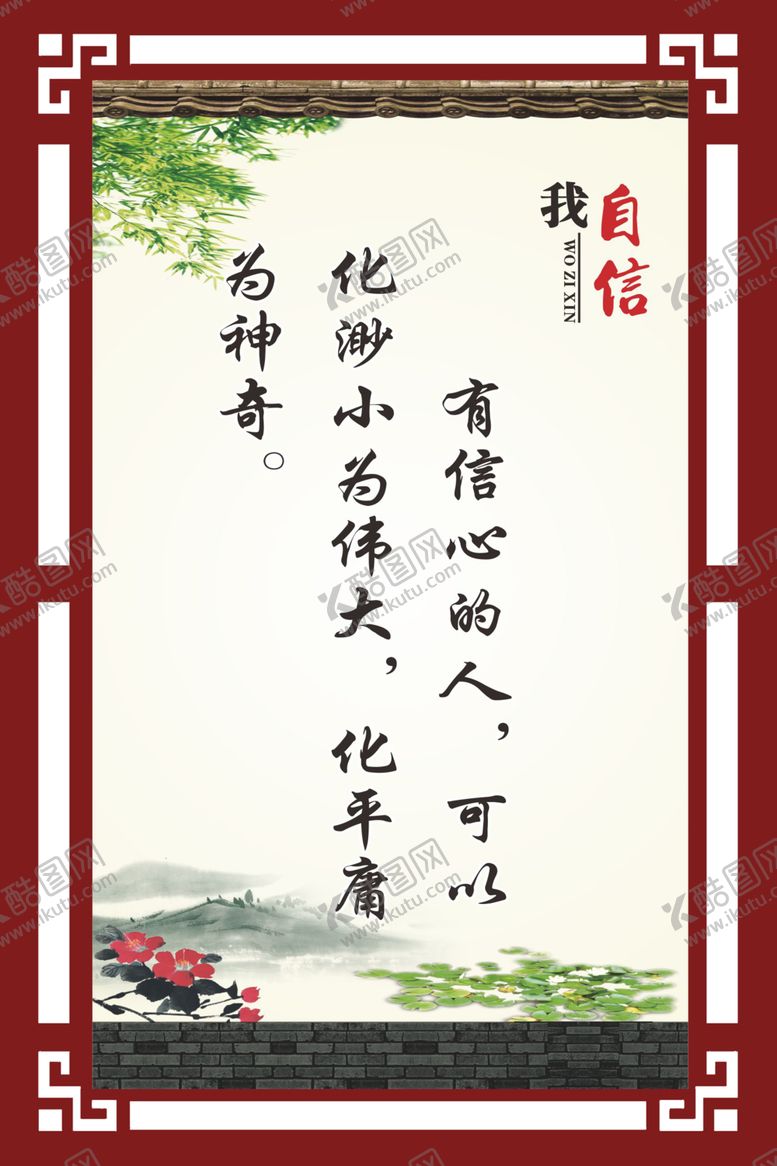 我自信
WO ZI XIN
有信心的人，可以
化渺小为伟大，化平庸
为神奇。
酷图网
www.ikutu.com